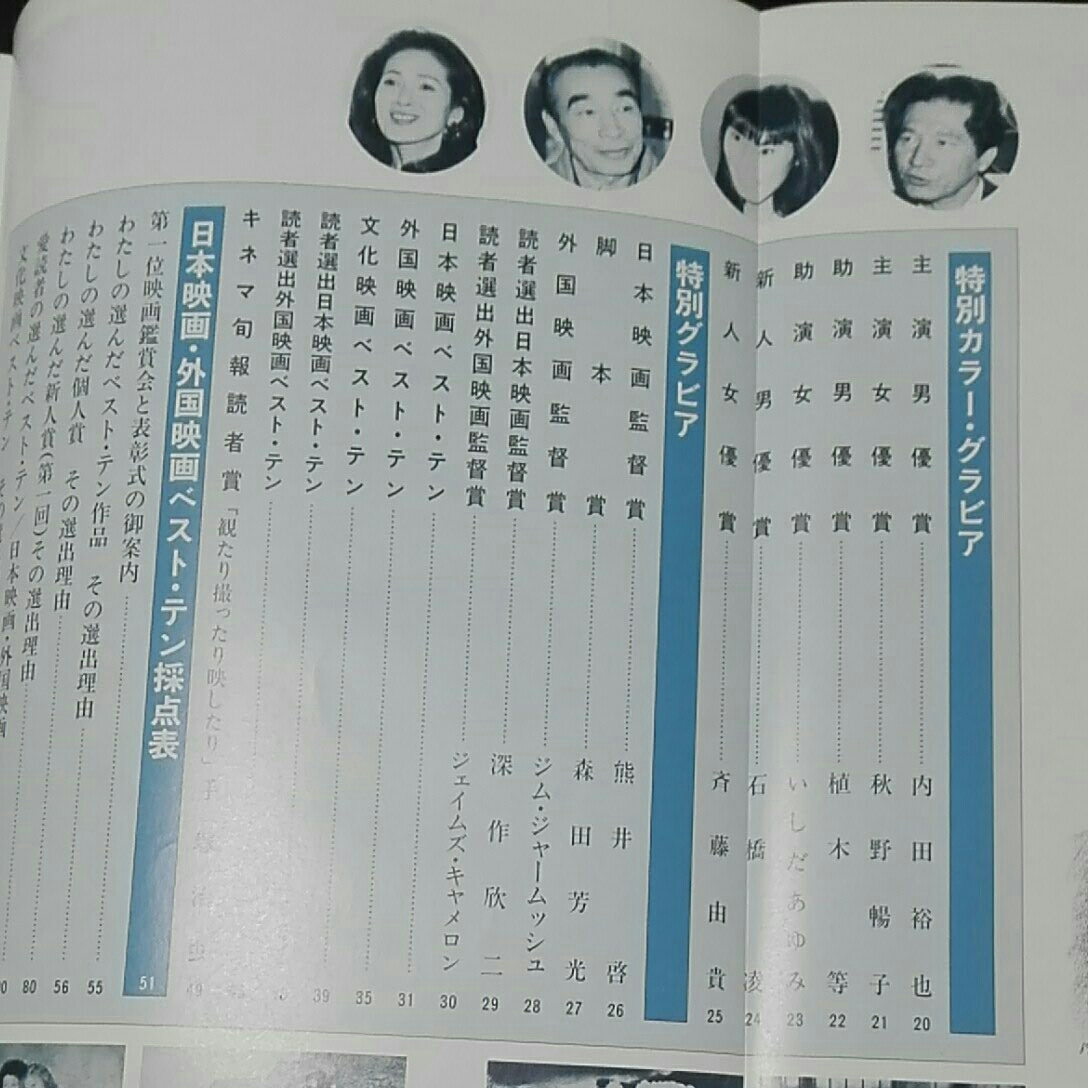 特別カラー・グラビア
主演男優賞 内田裕也 20
主演女優賞 秋野暢子 21
助演男優賞 植木等 22
助演女優賞 いしだあゆみ 23
新人男優賞 石橋凌 24
新人女優賞 斉藤由貴 25
特別グラビア
日本映画監督賞 熊井啓 26
脚本賞 森田芳光 27
外国映画監督賞 ジム・ジャームッシュ 28
読者選出日本映画監督賞 深作欣二 29
読者選出外国映画監督賞 ジェイムズ・キャメロン 30
日本映画ベスト・テン 31
外国映画ベスト・テン 35
文化映画ベスト・テン 39
読者選出日本映画ベスト・テン
読者選出外国映画ベスト・テン
キネマ旬報読者賞「観たり撮ったり映したり」手塚治虫 49
日本映画・外国映画ベスト・テン採点表 51
第一位映画鑑賞会と表彰式の御案内 55
わたしの選んだベスト・テン作品 その選出理由 56
わたしの選んだ個人賞 その選出理由 80
わたしの選んだ新人賞(第一回)その選出理由
愛読者の選んだベスト・テン/日本映画・外国映画
文化映画ベスト・テン